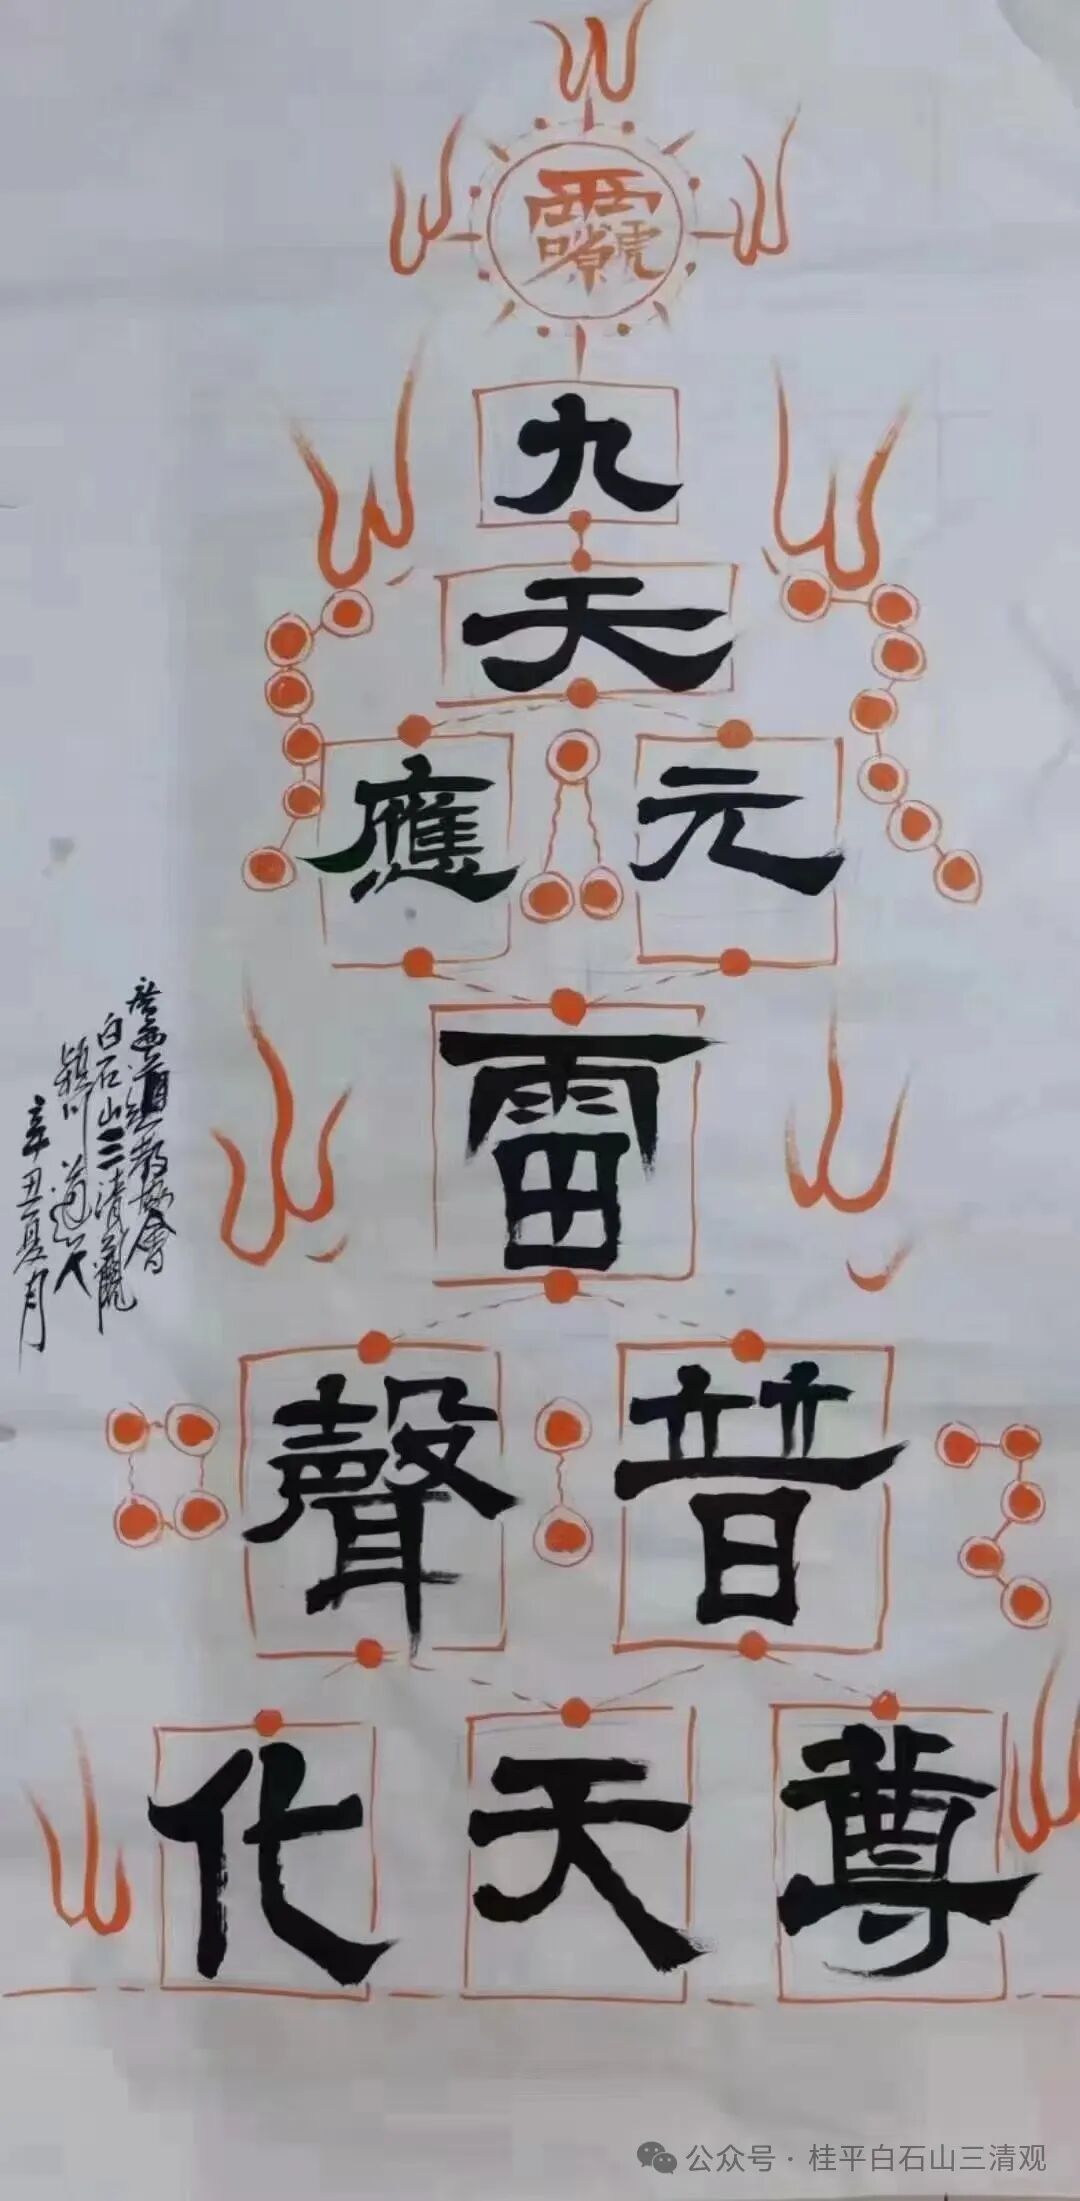 九
天
應元
雷
聲普
化天尊
廣西道教協會
白石山三清觀
穎川道人
辛丑夏月
公众号·桂平白石山三清观